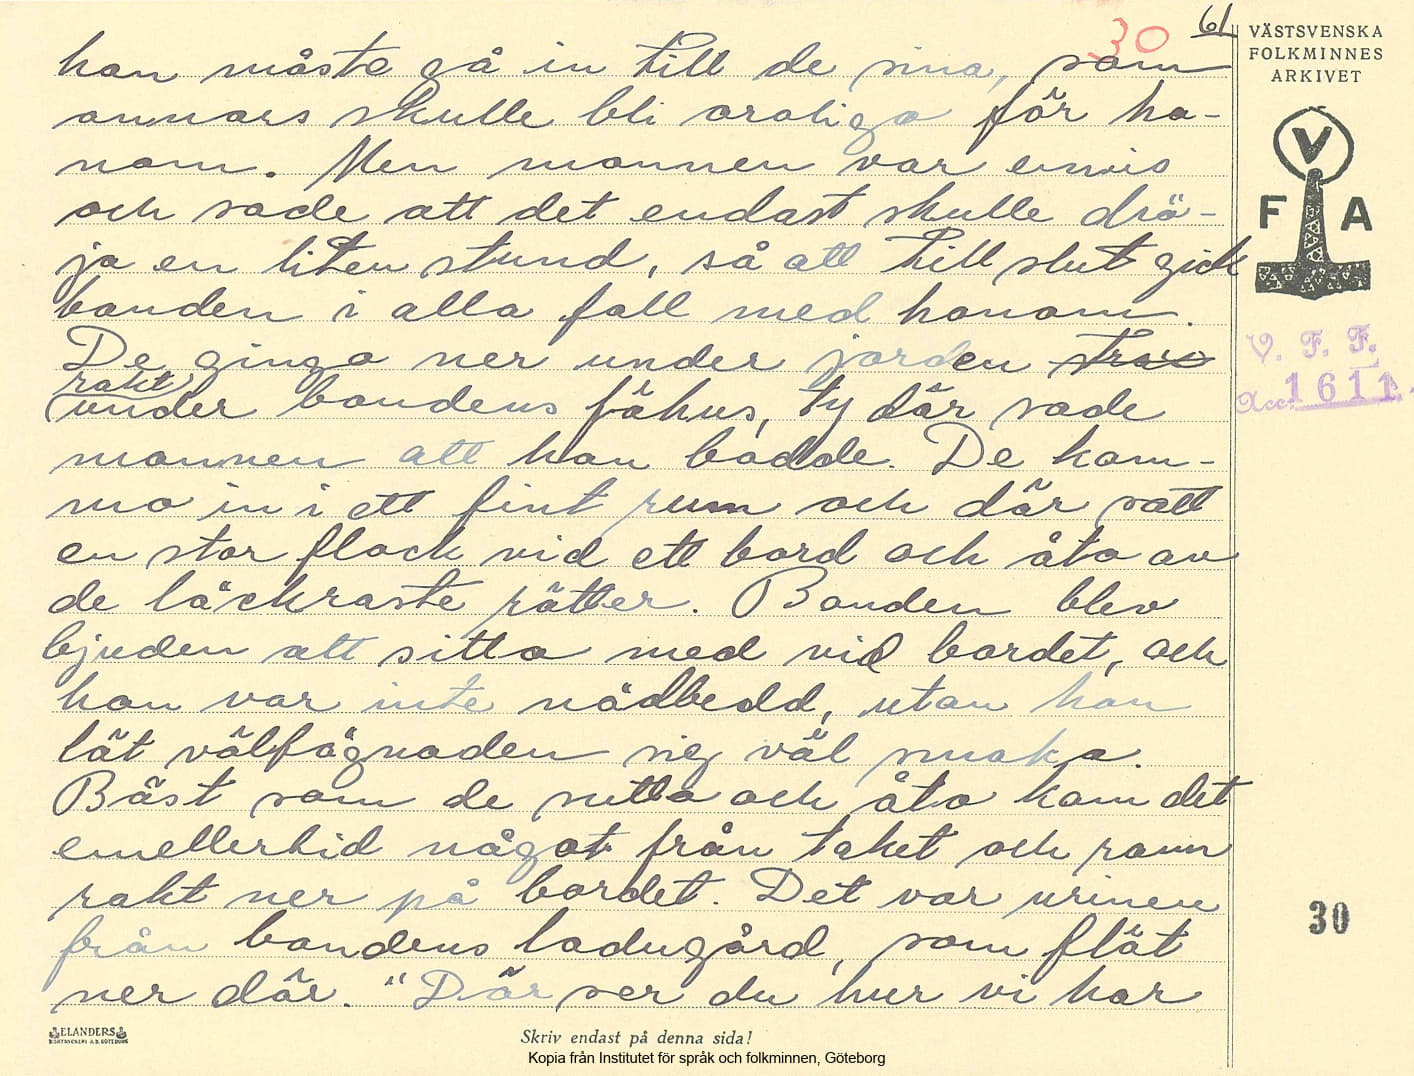 30 61
VÄSTSVENSKA
FOLKMINNES
ARKIVET
V
F A
V. F. F.
Acc. 1611
han måste gå in till de sina, som
annars skulle bli oroliga för ho-
nom. Men mannen var envis
och sade att det endast skulle drö-
ja en liten stund, så att till slut gick
bonden i alla fall med honom.
De gingo ner under jorden
rakt
under bondens fähus, ty där sade
mannen att han bodde. De kom-
mo in i ett fint rum och där satt
en stor flock vid ett bord och åto av
de läckraste rätter. Bonden blev
bjuden att sitta med vid bordet, och
han var inte nödbedd, utan han
lät välfägnaden sig väl smaka.
Bäst som de sutto och åto kom det
emellertid något från taket och rann
rakt ner på bordet. Det var urinen
från bondens ladugård, som flöt
ner där. "Där ser du hur vi har
30
ELANDERS
BOKTRYCKERI A.B. GÖTEBORG
Skriv endast på denna sida!
Kopia från Institutet för språk och folkminnen, Göteborg